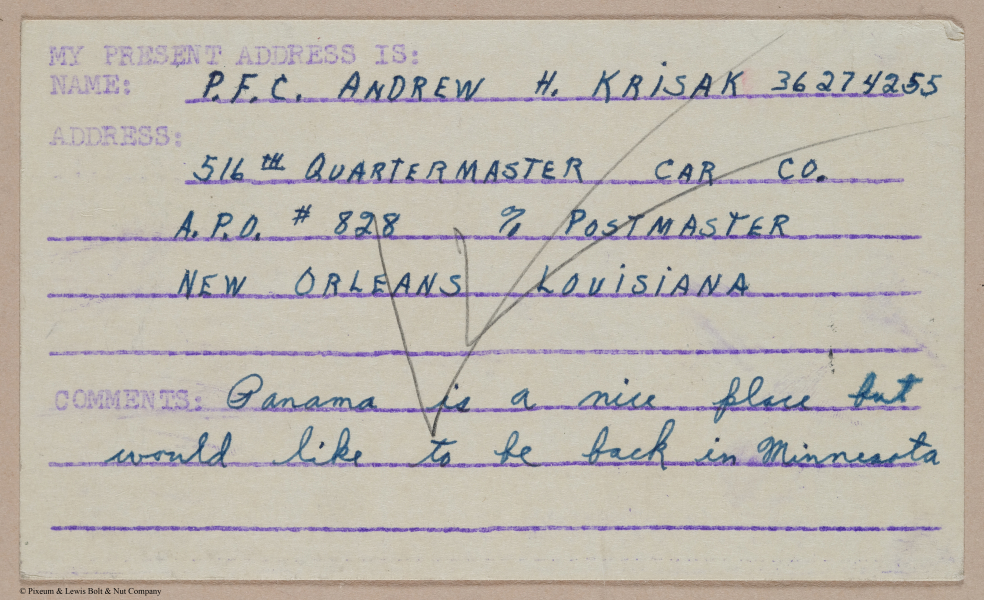 MY PRESENT ADDRESS IS:
NAME: P.F.C. ANDREW H. KRISAK 36274255
ADDRESS:
516TH QUARTERMASTER CAR CO.
A.P.O. # 828 % POSTMASTER
NEW ORLEANS LOUISIANA
COMMENTS: Panama is a nice place but
would like to be back in Minnesota
© Pixeum & Lewis Bolt & Nut Company